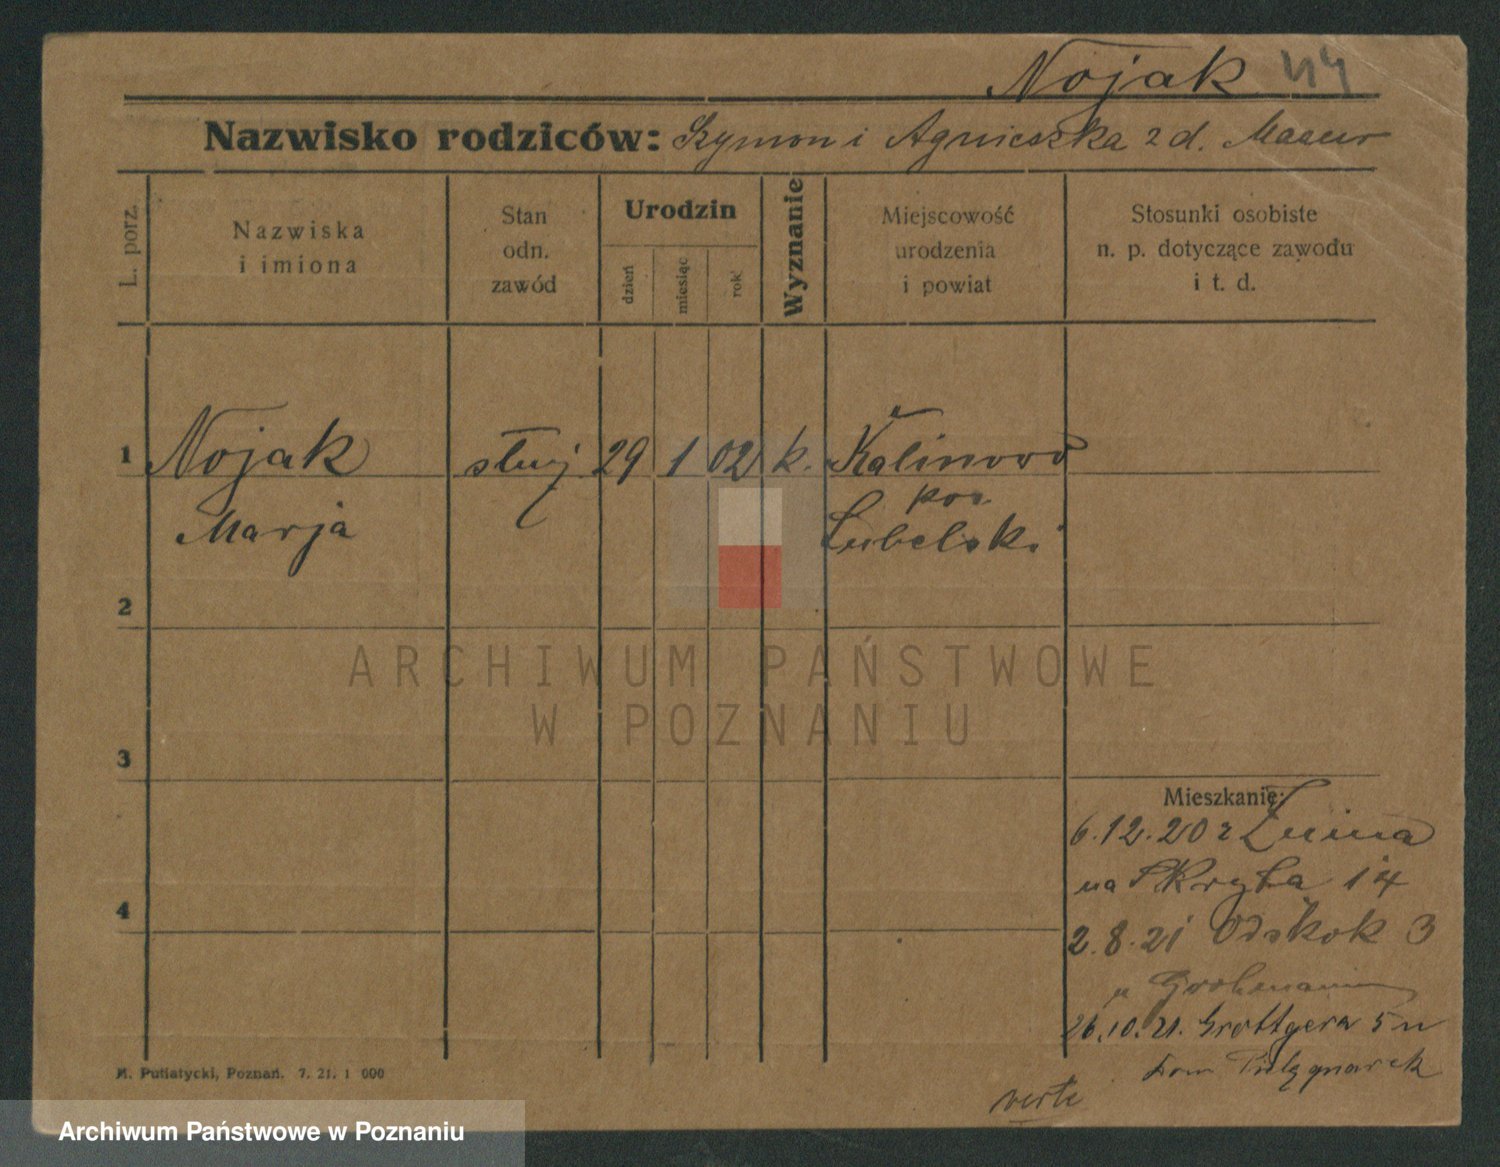 Nojak 44
Nazwisko rodziców: Szymon i Agnieszka z d. Mazur
L. porz.
Nazwiska
i imiona
Stan
odn.
zawód
Urodzin
dzień
miesiąc
rok
Wyznanie
Miejscowość
urodzenia
i powiat
Stosunki osobiste
n. p. dotyczące zawodu
i t. d.
1 Nojak służ 29 1 02 k. Kalinowo
pow
Marja Lubelski
2
ARCHIWUM PAŃSTWOWE
W POZNANIU
3
Mieszkanie:
6.12.20 z Żnina
na Skryta 14
4
2.8.21 Odskok 3
u
26.10.21. Grottgera 5 u
Dom Pielęgniarek
verte
M. Putiatycki, Poznań. 7. 21. 1 000
Archiwum Państwowe w Poznaniu